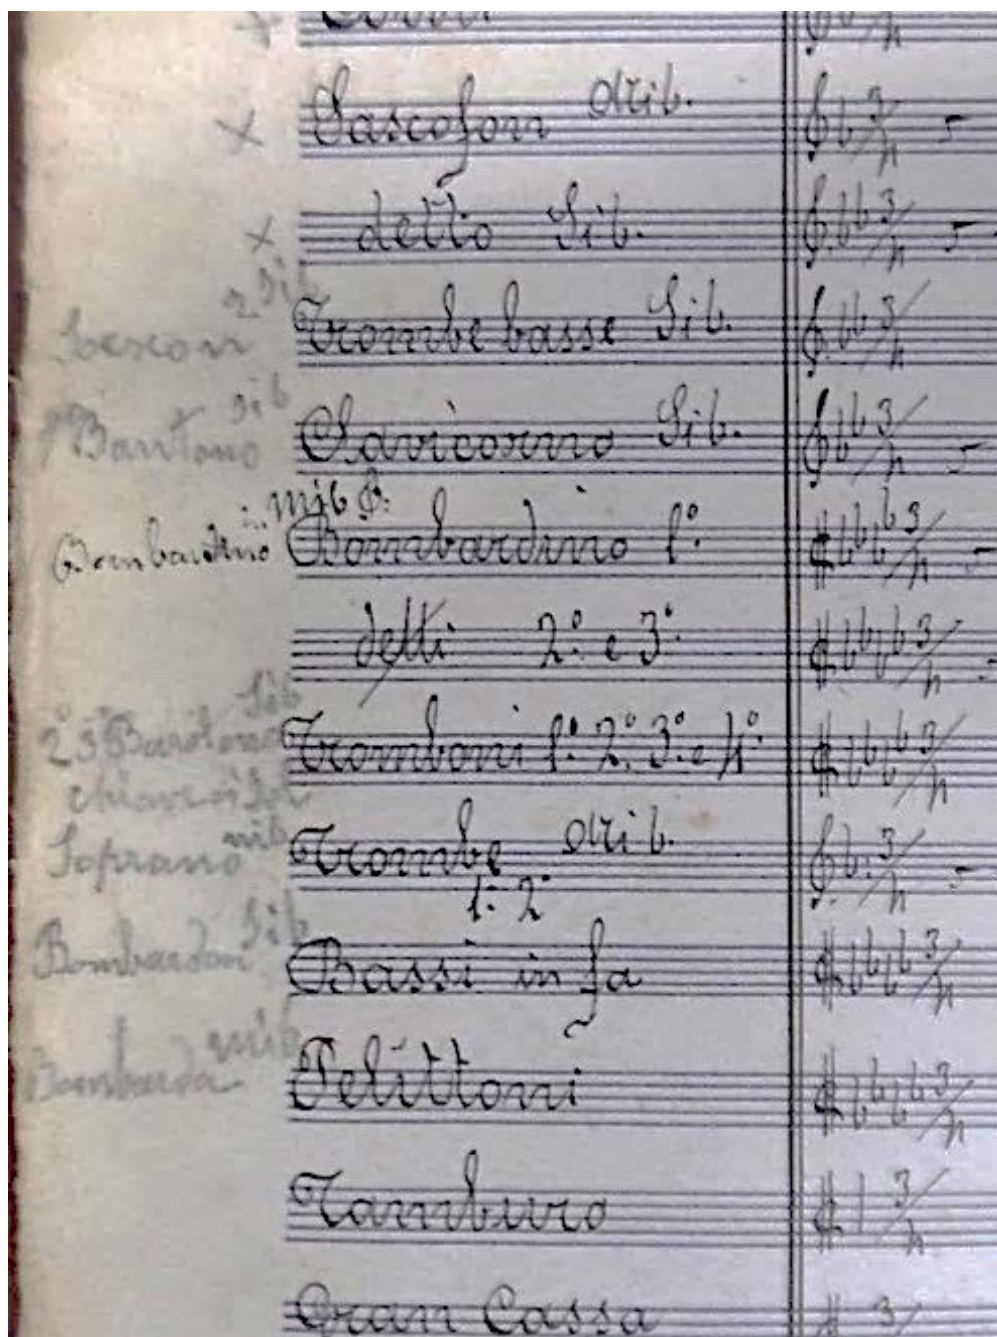 Corni
× Sascofoni Mib.
× detto Sib.
2 Sib
Trombe basse Sib.
Baritono Sib Clavicorno Sib.
in Mib
Bombardino Bombardino 1º.
detti 2º. e 3º.
2º 3º Baritono Sib Tromboni 1º. 2º. 3º. e 4º.
chiave
Soprano mib Trombe Mib.
1º. 2º
Bombardon Sib Bassi in fa
Bombarda mib Pelittoni
Tamburo
Gran Cassa